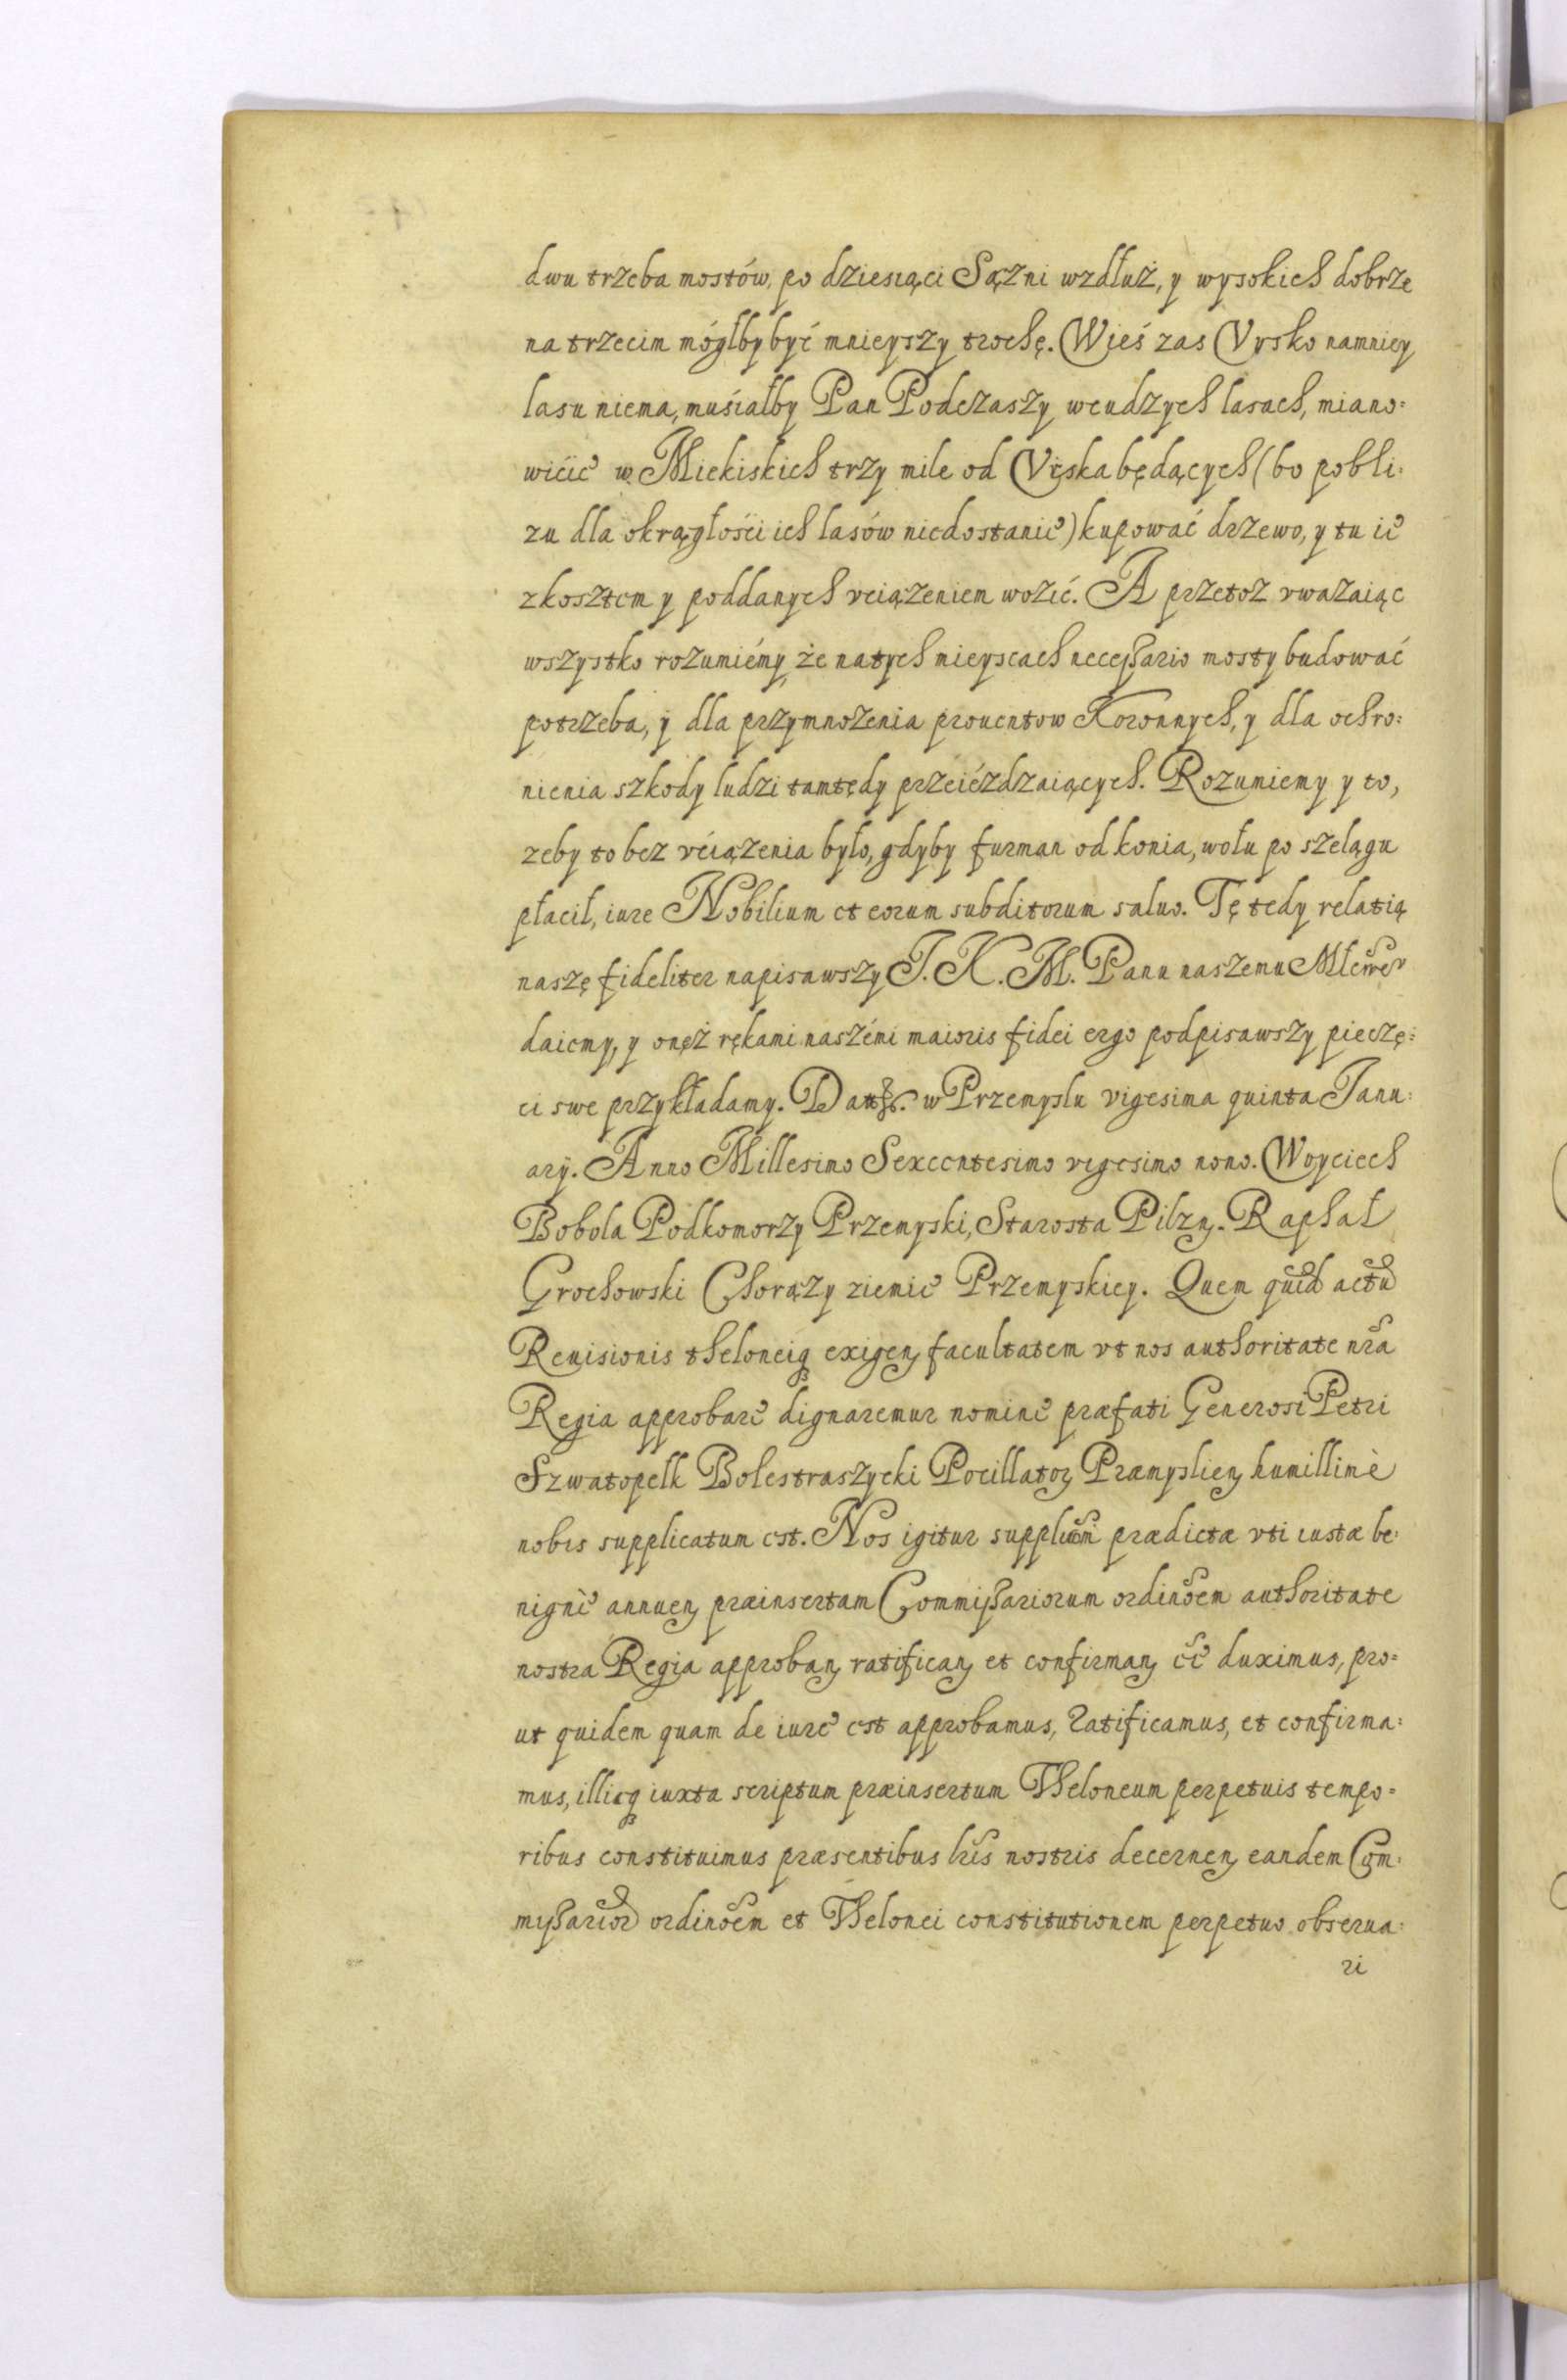 dwu trzeba mostów, po dziesiąci Sążni wzdłuż, y wysokich dobrze
na trzecim mógłby być mnieyszy trochę. Wieś zas Vysko namniey
lasu niema, muśiałby Pan Podczaszy wcudzych lasach, miano=
wićie w Miekiskich trzy mile od Viska będących (bo pobli=
zu dla okrągłości ich lasów niedostanie) kupować drzewo, y tu ie
zkosztem y poddanych vciązeniem wozić. A przetoz vwazaiąc
wszystko rozumiémy, że natych mieyscach necessario mosty budować
potrzeba, y dla przymnozenia prouentow Koronnych, y dla ochro=
nienia szkody ludzi tamtędy przeiézdzaiących. Rozumiemy y to,
zeby to bez vćiązenia było, gdyby furman od konia, wołu po szelągu
płacił, iure Nobilium et eorum subditorum saluo. Tę tedy relatią
naszę fideliter napisawszy J. K. M. Panu naszemu Mlẽwẽv
daiemy, y onęż rękami naszémi maioris fidei ergo podpisawszy pieczę=
ci swe przykładamy. Datt. w Przemyslu vigesima quinta Janu=
arÿ. Anno Millesimo Sexcentesimo vigesimo nono. Woyciech
Bobola Podkomorzy Przemyski, Starosta Pilzn. Raphał
Grochowski Chorązy ziemie Przemyskiey. Quem quid actũ
Reuisionis theloneiq exigen facultatem vt nos authoritate nr̃a
Regia approbare dignaremur nomine præfati Generosi Petri
Szwatopelk Bolestraszycki Pocillator Præmyslien humillimè
nobis supplicatum est. Nos igitur supplicõni prædictæ vti iustæ be=
nignè annuen præinsertam Commissariorum ordinõem authoritate
nostra Regia approban ratifican et confirman eẽ duximus, pro=
ut quidem quam de iure est approbamus, ratificamus, et confirma=
mus, illicq iuxta scriptum præinsertum Theloneum perpetuis tempo=
ribus constituimus præsentibus lr̃is nostris decernen eandem Com=
missarior ordinõem et Thelonei constitutionem perpetuo obserua=
ri